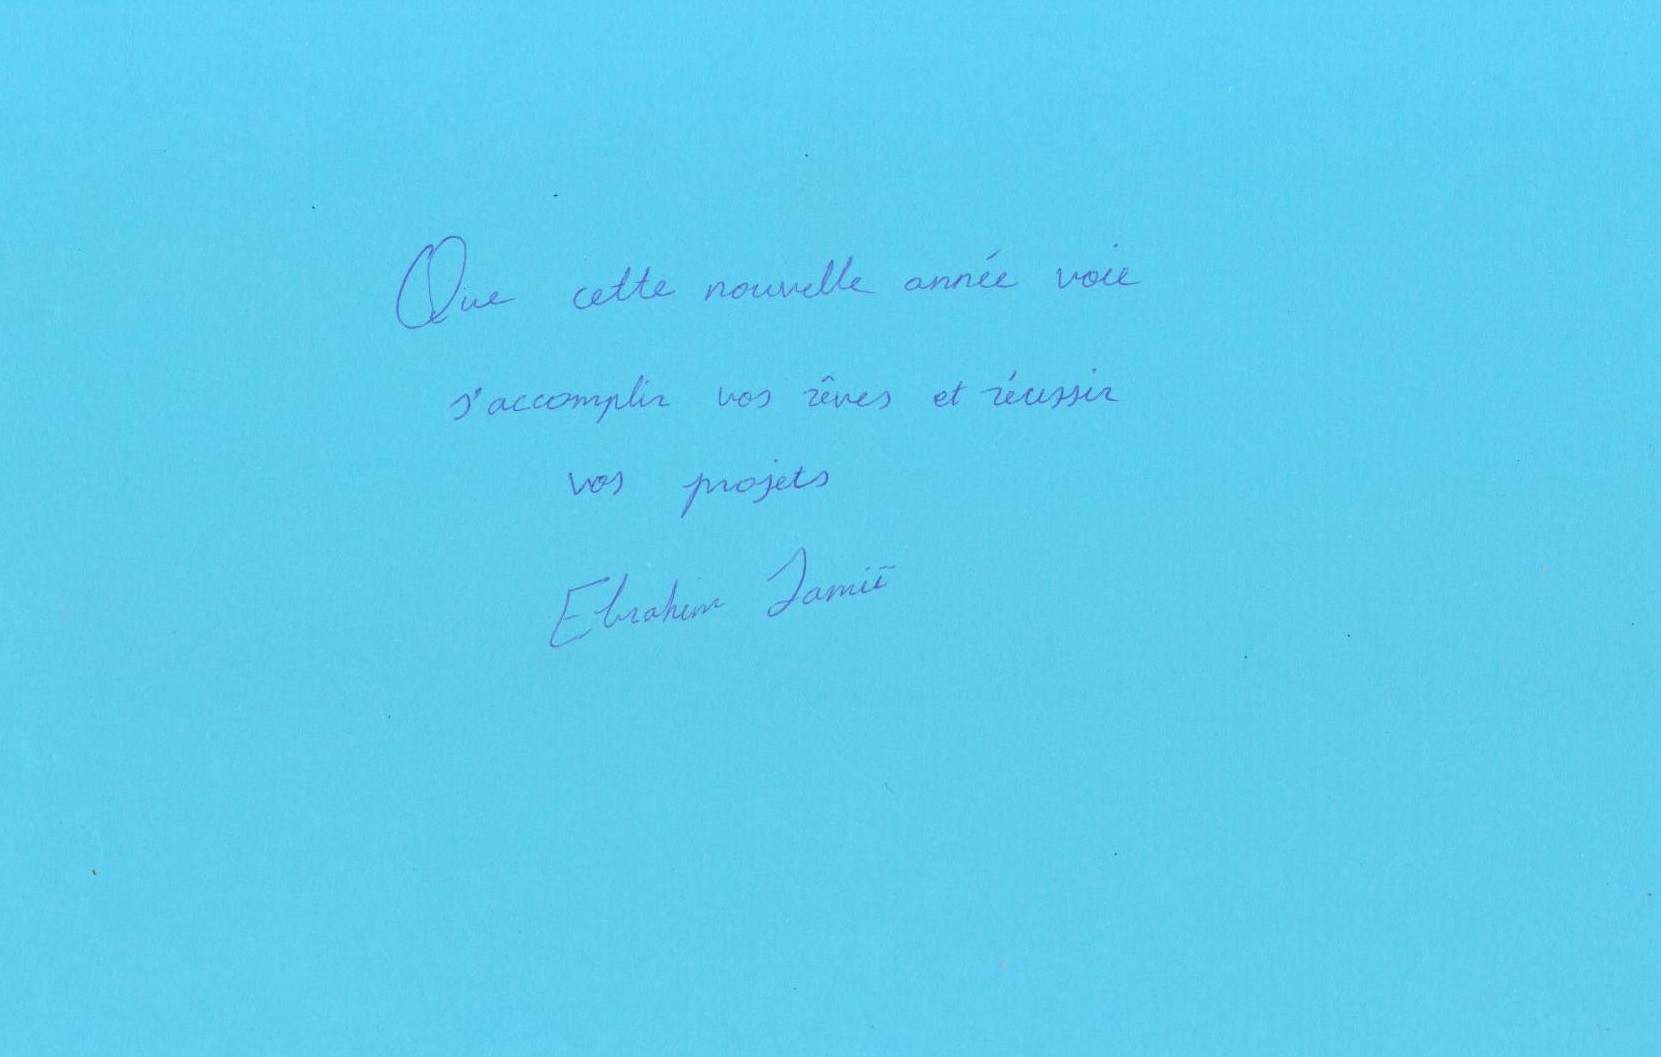 Que cette nouvelle année voie
s'accomplir vos rêves et réussir
vos projets
Ebrahim